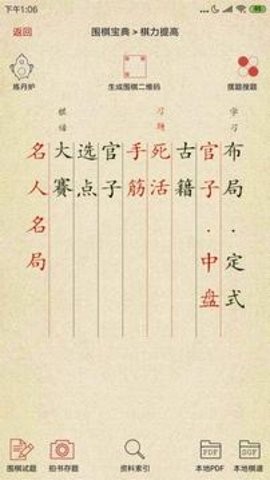 下午1:06
返回
围棋宝典 > 棋力提高
炼丹炉
生成围棋二维码
摆题搜题
学习
布局·定式
官子·中盘
古籍
习题
死活
手筋
官子
选点
棋谱
大賽
名人名局
PDF
SGF
围棋试题
拍书存题
资料索引
本地PDF
本地棋谱